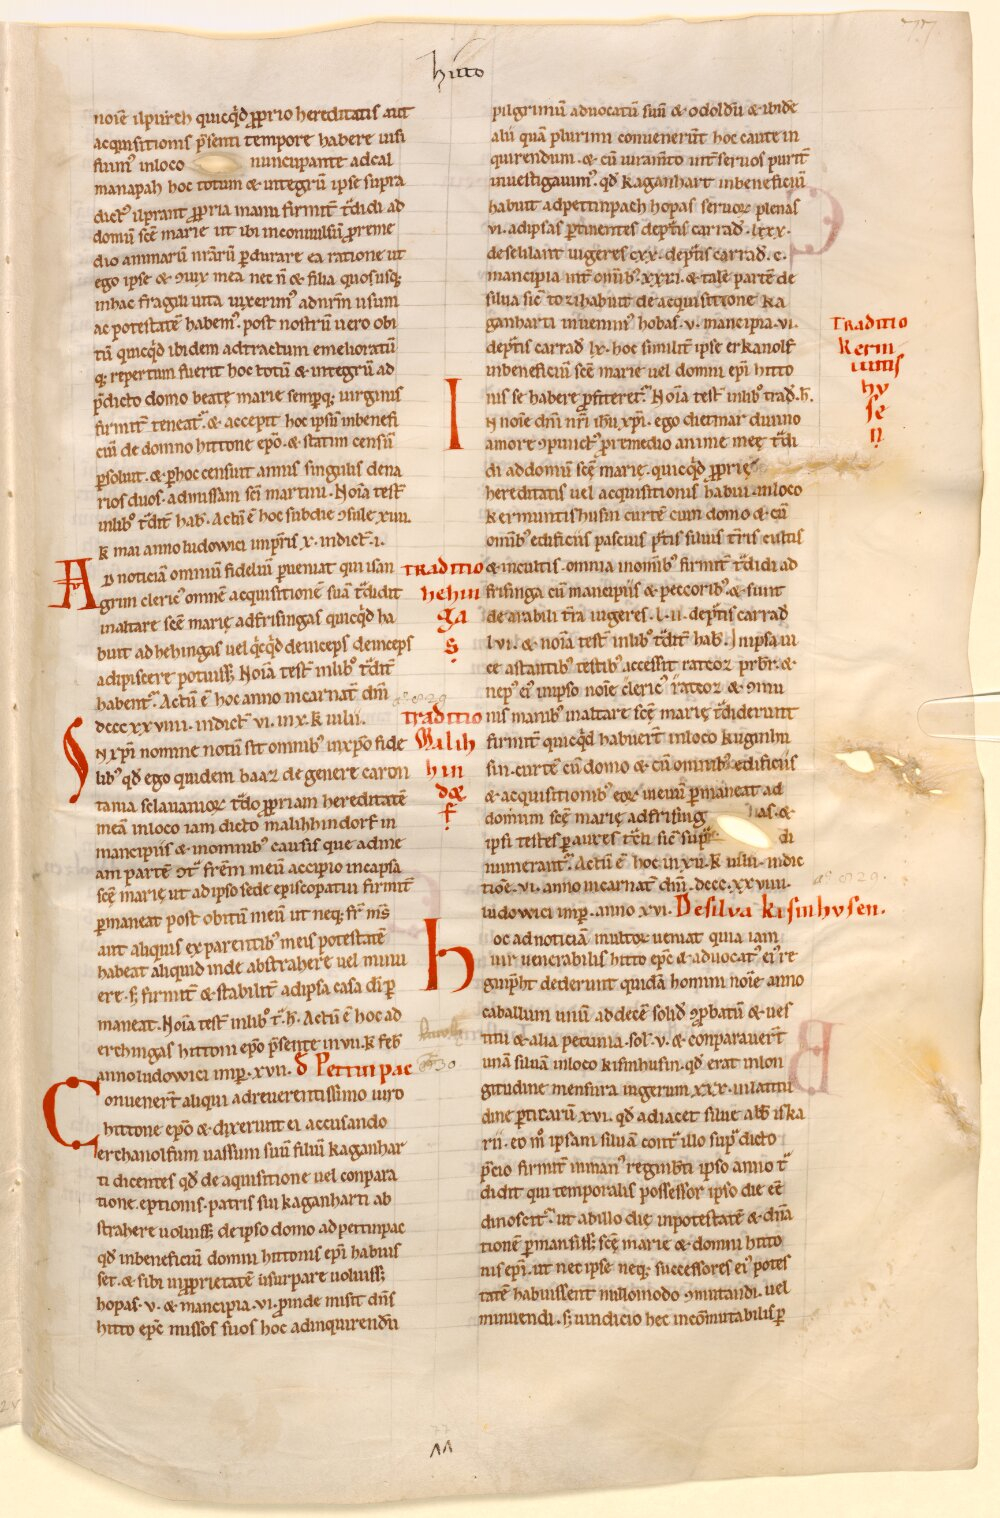 77
hitto
noīe ilpurch quicq̇d ꝓprio hereditatis aut
acquisitionis p̄senti tempore habere uisi
fuim᷒ inloco nuncupante adcal
manapah hoc totum & integrū ipse supra
dict᷒ ilprant ꝓpria manu firmit̄ t̄didi ad
domū scē marie ut ibi inconuulsū ꝑreme
dio animarū nr̄arū ꝑdurare ea ratione ut
ego ipse & ꝯiux mea nec n̄ & filia quo usq;
inhac fragili uita uixerim᷒ adnr̄m usum
ac potestatē habem᷒. post nostrū uero obi
tū quicq̇d ibidem adtractum emelioratū
q; repertum fuerit hoc totū & integrū ad
p̄dicto domo beatę marie semp q; uirginis
firmit̄ teneat᷒. & accepit hoc ipsū inbenefi
ciū de domno hittone ep̄o. & statim censū
ꝑsoluit. & ꝑhoc censuit annis singulis dena
rios duos. admissam sc̄i martini. Noīa test̄
inlib᷒ t̄dit̄ hab̄. Actū ē hoc subdie ꝯsule xiiii.
k mai anno ludowici imp̄ris x. indict̄. i.
Ad noticiā omniū fideliū ꝑueniat qui isan
grim cleric᷒ omnē acquisitionē suā t̄didit
inaltare scē marię adfrisingas quicq̇d ha
buit ad hehingas uel q̇cq̇d deinceps deinceps
adipiscere potuiss&. Noīa test̄ inlib᷒ t̄dit̄
habent᷒. Actū ē hoc anno incarnat̄ dn̄i
dccc xx viiii. indict̄ vi. in x. k iulii.
traditio
hehin
ga
s
aº 829
In xp̄i nomine notū sit omnib᷒ inxp̄o fide
lib᷒ qd̄ ego quidem baaz de genere caron
tania sclauanioꝝ t̄do ꝓpriam hereditatē
meā inloco iam dicto malihhindorf in
mancipiis & inomnib᷒ causis que adme
am partē ꝯt̄ frēm meū accipio incapsa
scē marię ut adipso sede episcopatui firmit̄
ꝑmaneat post obitū meū ut neq; fr̄ m̄s
aut aliquis exparentib᷒ meis potestatē
habeat aliquid inde abstrahere uel minu
ere. s; firmit̄ & stabilit̄ adipsa casa dī ꝑ
maneat. Noīa test̄ inlib᷒ t̄. h̄. Actū ē hoc ad
erchingas hittoni ep̄o p̄sente in vii. k feb̄
anno ludowici imp̄. xvii.
traditio
Malih
hin
dor
f
830
đ Pettinpac
Conuenert̄ aliqui adreuerentissimo uiro
hittone ep̄o & dixerunt ei accusando
erchanolfum uassum suū filiū kaganhar
ti dicentes qd̄ de aquisitione uel conpara
tione. eptionis. patris sui kaganharti ab
strahere uoluiss& de ipso domo adpettinpac
qd̄ inbeneficiū domni hittonis ep̄i habuis
set. & sibi inꝓprietatē usurpare uoluiss&
hopas. v. & mancipia. vi. ꝓinde misit dn̄s
hitto ep̄c missos suos hoc adinquirendū
pilgrimū aduocatū suū & odoldū & ibide
alii quā plurimi conuenerūt hoc caute in
quirendum. & cū iuram̄to int̄ seruos purit̄
inuestigauim᷒. qd̄ kaganhart inbeneficiū
habuit adpettinpach hopas seruoꝝ plenas
vi. adipsas ꝑtinentes de pt̄is carrad̄. lxxx.
deselilant iugeres cxx. depr̄tis carrad̄. c.
mancipia int̄ omīb᷒. xxvi. & tale partē de
silua sic̄ tozi habuit de acquisitione ka
ganharti inuenim᷒ hobas. v. mancipia. vi.
depr̄tis carrad̄ lx. hoc similit̄ ipse erkanolf
inbeneficiū scē marie uel domni ep̄i hitto
nis se habere ꝓfiteret᷒. Noīa test̄ inlib᷒ trad̄. h̄.
traditio
kerm
untis
hv
se
n
In noīe dn̄i nr̄i ih̄u xp̄i. ego chetmar diuino
amore ꝯpunct᷒ ꝓremedio anime meę t̄di
di addomū scē marię. quicq̇d ꝓprię
hereditatis uel acquisitionis habui. inloco
kermuntishusin curtē cum domo & cū
omīb᷒ edificiis pascuis pr̄tis siluis t̄ris cultis
& incultis. omnia inomīb᷒ firmit̄ t̄didi ad
frisinga cū mancipiis & peccorib᷒. & sunt
de arabili t̄ra iugeres. l. ii. depr̄tis carrad̄
lvi. & noīa test̄ inlib᷒ t̄dit̄ hab̄. Inipsa ui
ce astantib᷒ testib᷒ accessit ratcoz pr̄br̄. &
nep᷒ ei᷒ inipso noīe cleric᷒ ratcoz & ꝯiun
nis manib᷒ inaltare scē marię t̄diderunt
firmit̄ quicq̇d habuert̄ inloco kuginhu
sin. curtē cū domo & cū omnib᷒ edificiis
& acquisitionib᷒ eoꝝ ineuū ꝑmaneat ad
domum scē marię adfrising has. &
ipsi testes ꝑaures t̄cti sic̄ sup̄ di
numerant᷒. Actū ē hoc in xii. k iulii. indic
tiōe. vi. anno incarnat̄ dn̄i. dccc. xxviiii.
ludowici imp̄. anno xvi. De silva kisinhvsen.
aº 829.
Hoc adnoticiā multoꝝ ueniat quia iam
uir uenerabilis hitto ep̄c & aduocat᷒ ei᷒ re
ginp̄ht dederunt quidā homini noīe anno
caballum unum addecē solid̄ ꝯpbatū & ues
titu & alia pecunia. sol̄. v. & conparauert̄
unā siluā inloco kisinhusin. qd̄ erat inlon
gitudine mensura iugerum xxx. inlatitu
dine ꝑticarū xvi. qd̄ adiacet silue alb̄ iska
rii. eo m̊ ipsam siluā contr̄ illo sup̄ dicto
p̄cio firmit̄ inman᷒ reginb̄ti ipso anno t̄
didit qui temporalis possessor ipso die eē
dinoscit᷒. ut abillo die inpotestatē & dn̄a
tionē ꝑmansiss& scē marie & domni hitto
nis ep̄i. ut nec ipse neq; successores ei᷒ potes
tatē habuissent nullomodo ꝯmutandi. uel
minuendi. s; uindicio hec incōmutabilis ꝑ
77